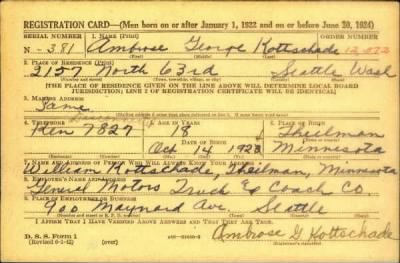 REGISTRATION CARD—(Men born on or after January 1, 1922 and on or before June 30, 1924)
SERIAL NUMBER 1. NAME (Print) ORDER NUMBER
N-381 Ambrose George Kottschade 12,572
(First) (Middle) (Last)
2. PLACE OF RESIDENCE (Print)
2157 North 63rd Seattle Wash
(Number and street) (Town, township, village, or city) (County) (State)
[THE PLACE OF RESIDENCE GIVEN ON THE LINE ABOVE WILL DETERMINE LOCAL BOARD
JURISDICTION; LINE 2 OF REGISTRATION CERTIFICATE WILL BE IDENTICAL]
3. MAILING ADDRESS
Same
4. TELEPHONE 5. AGE IN YEARS 6. PLACE OF BIRTH
Ken 7827 18 Theilman
DATE OF BIRTH
Oct 14 1923 Minnesota
7. NAME AND ADDRESS OF PERSON WHO WILL ALWAYS KNOW YOUR ADDRESS
William Kottschade, Theilman, Minnesota
8. EMPLOYER'S NAME AND ADDRESS
General Motors Truck & Coach Co
9. PLACE OF EMPLOYMENT OR BUSINESS
900 Maynard Ave. Seattle
(Number and street or R. F. D. number) (Town) (County) (State)
I AFFIRM THAT I HAVE VERIFIED ABOVE ANSWERS AND THAT THEY ARE TRUE.
D. S. S. Form 1
(Revised 6-1-42)
Ambrose G Kottschade
(Registrant's signature)